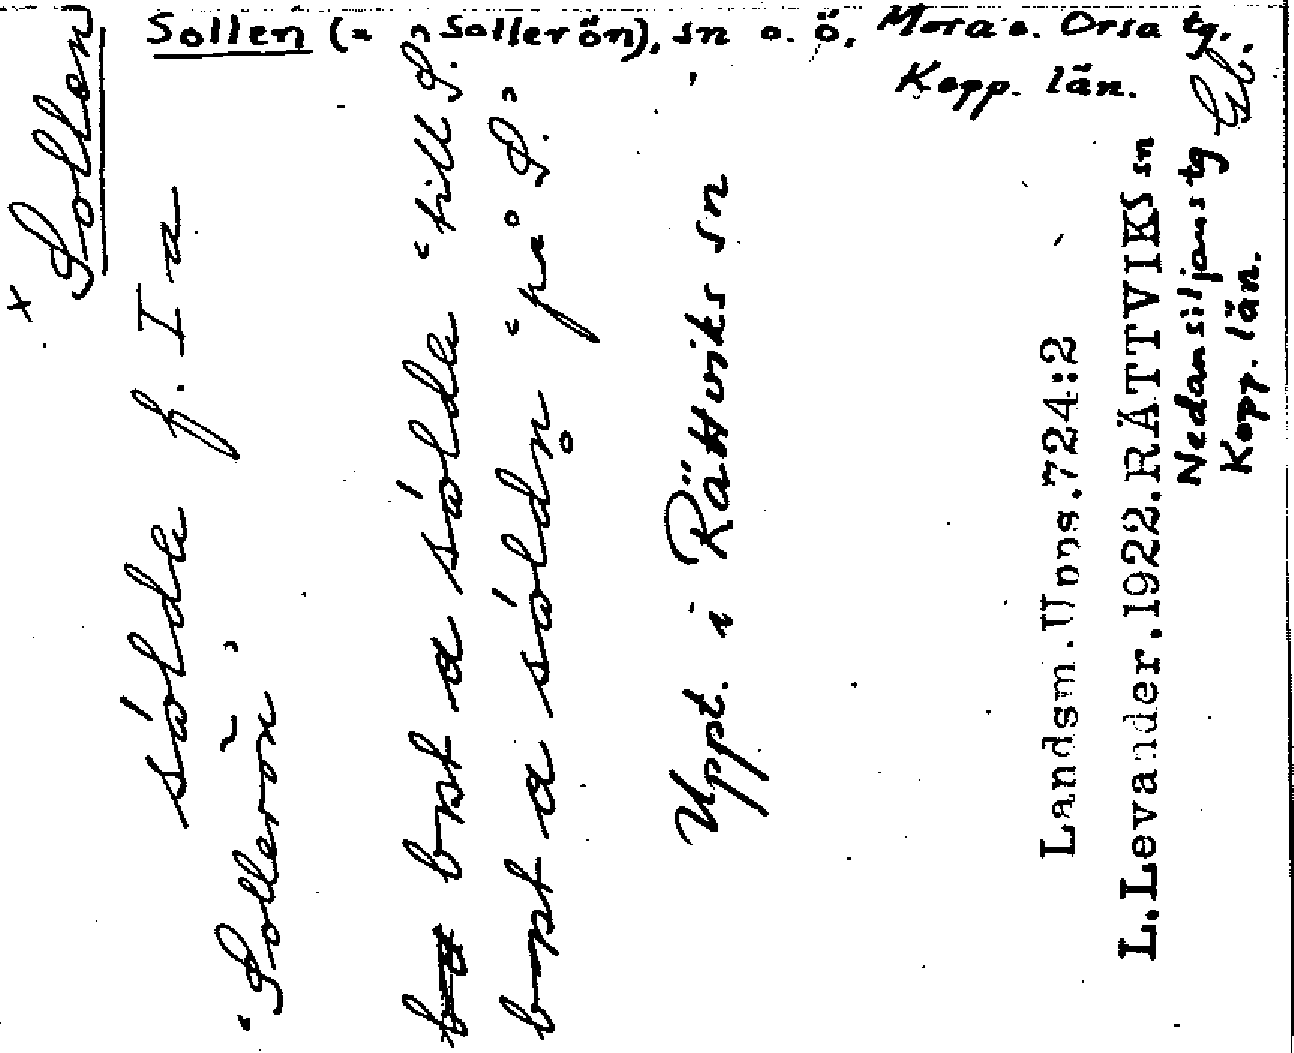 Sollen (= Sollerön), sn o. ö, Mora o. Orsa tg.
Kopp. län.
x Sollen
sólde f. Ia
"Sollerön"
bort a sólde "till S."
bort a sóldn̥ "på S."
Uppt. i Rättviks sn
Landsm. Upps. 724:2
L. Levander. 1922. RÄTTVIKS sn
Nedansiljans tg
Kopp. län.